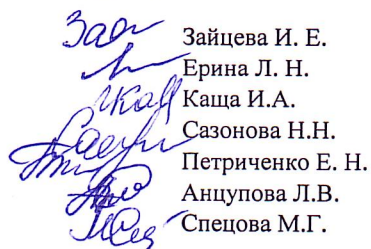 Зайцева И. Е.
Ерина Л. Н.
Каща И.А.
Сазонова Н.Н.
Петриченко Е. Н.
Анцупова Л.В.
Спецова М.Г.